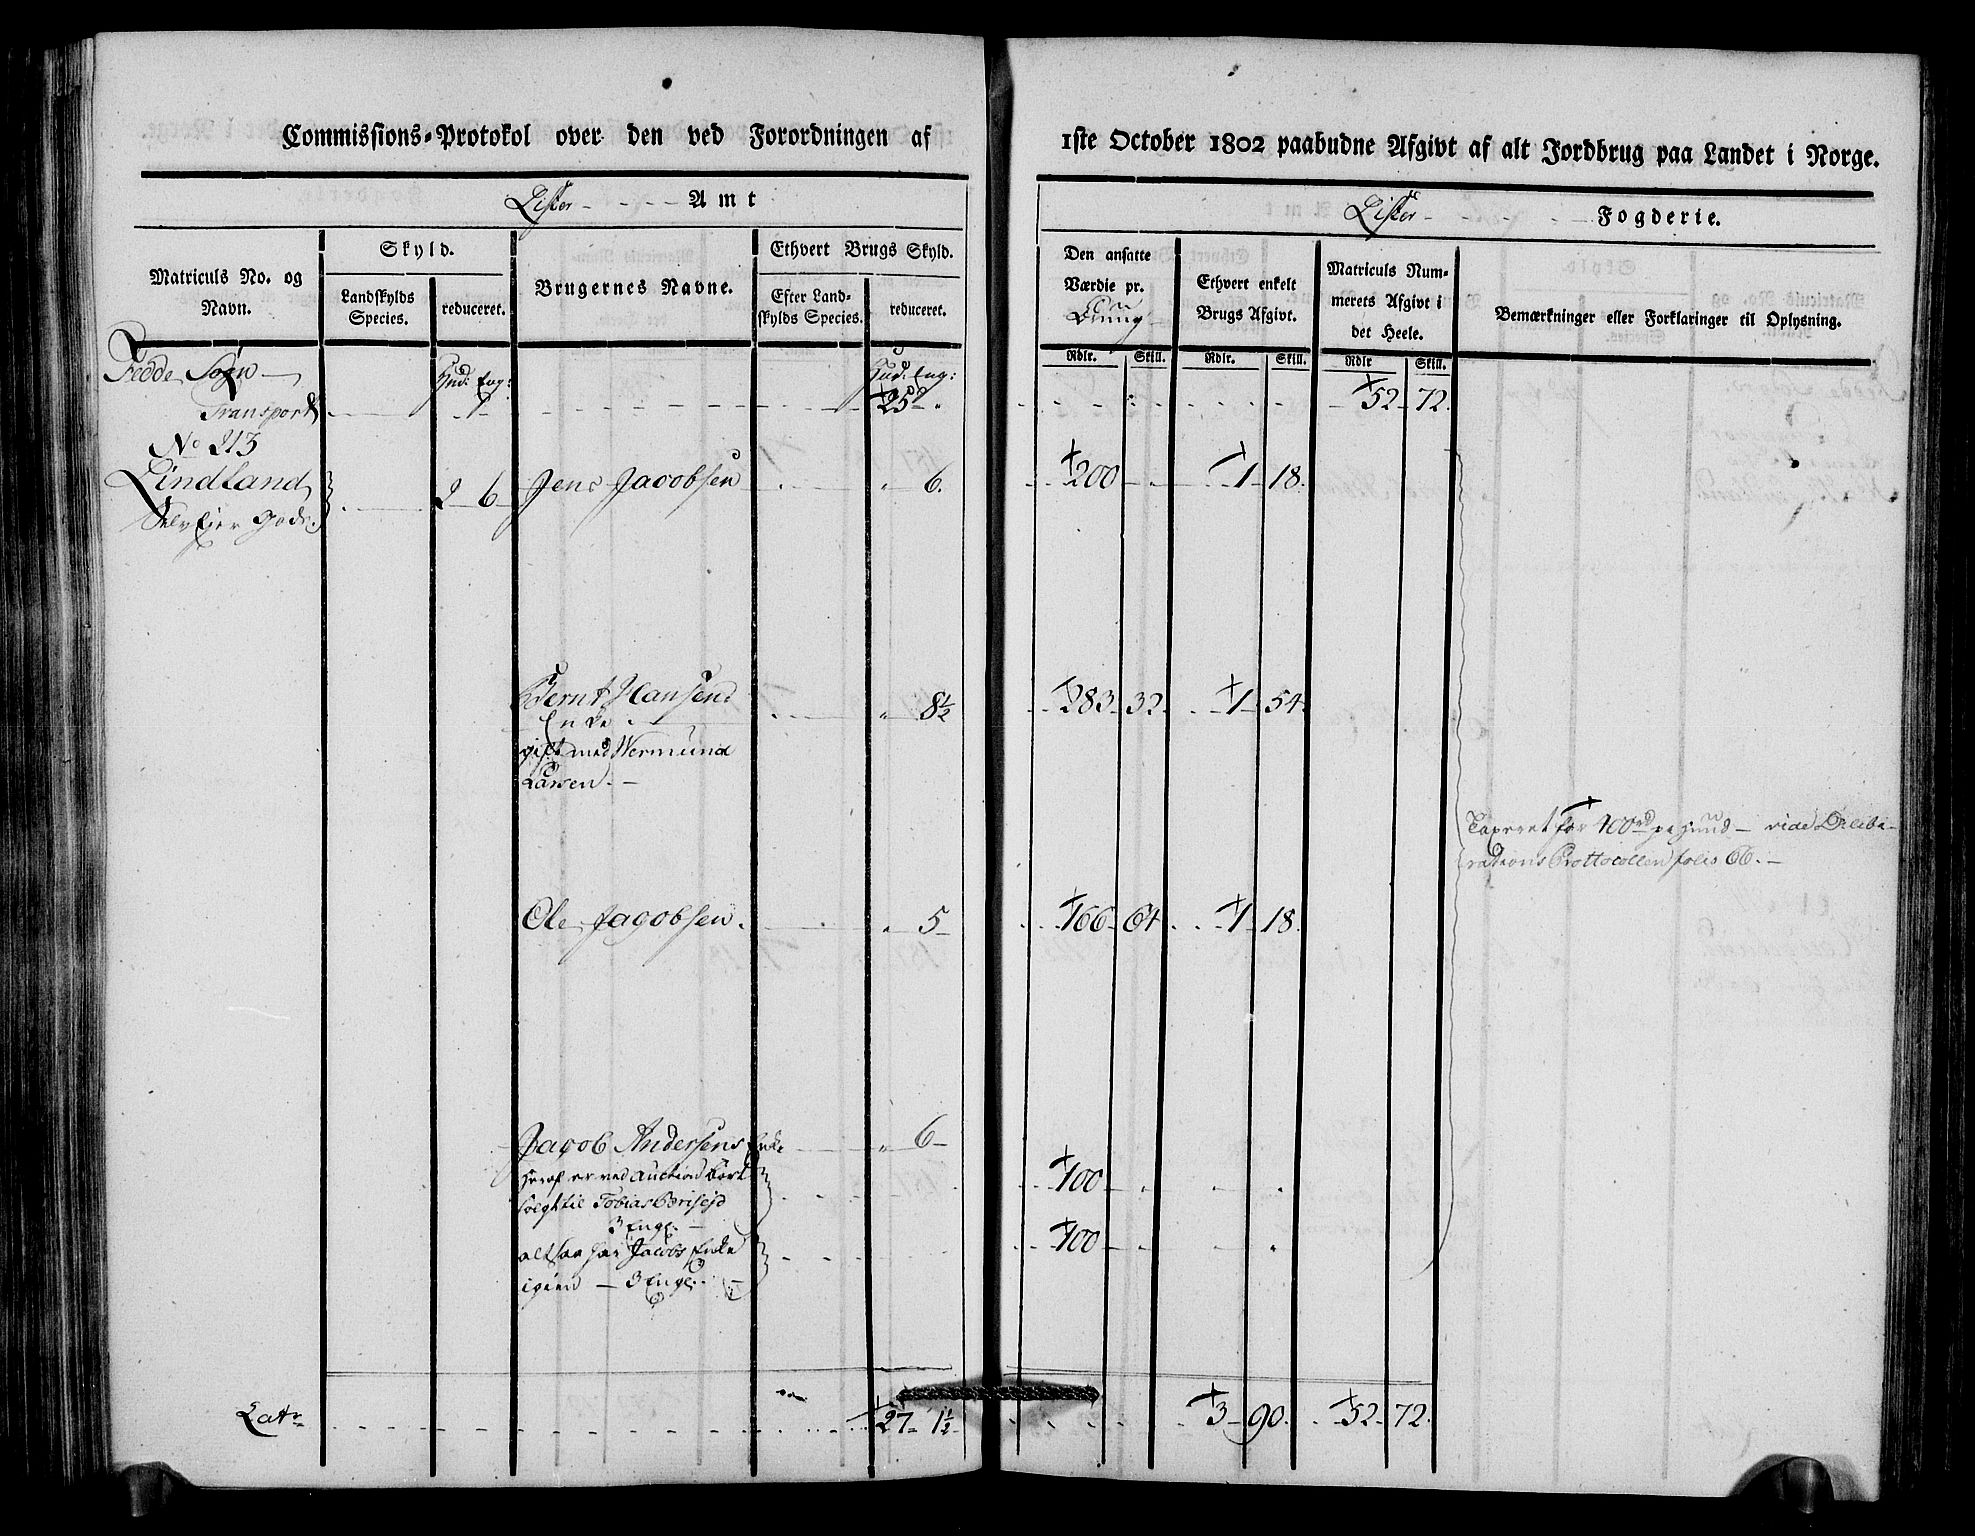 Commissions-Protokol over den ved Forordningen af
1ste October 1802 paabudne Afgivt af alt Jordbrug paa Landet i Norge.
Lister - - - - Amt
Lister - - - - Fogderie.
Matriculs No. og
Navn.
Skyld.
Landskylds
Species.
reduceret.
Brugernes Navne.
Ethvert Brugs Skyld.
Efter Land-
skylds Species.
reduceret.
Den ansatte
Værdie pr.
Ethvert enkelt
Brugs Afgivt.
Matriculs Num-
merets Afgivt i
det Heele.
Bemærkninger eller Forklaringer til Oplysning.
Rdlr. Skill. Rdlr. Skill. Rdlr Skill.
Fedde Sogn
Hud: Eng: Hud: Eng:
Transport 25 52 72
No 213
Lindland 2 6 Jens Jacobsen 6. 200 1 18
Selv Eier Gods.
Bernt Hansens 8½ 283 32 1 54
Enke
gift med Wermund
Larsen.
Taxeret for 400rd pr Hud - vide Delibe-
rations Prottocollen folio 66.
Ole Jagobsen 5 166 64 1 18
Jagob Andersens Enke 6
heraf er ved Auction bort 100
solgt til Tobias
3 Enge.
altsaa har Jacobs Enke 100
igien - 3 Enge.
Latr 27 1½ 3 90 52 72